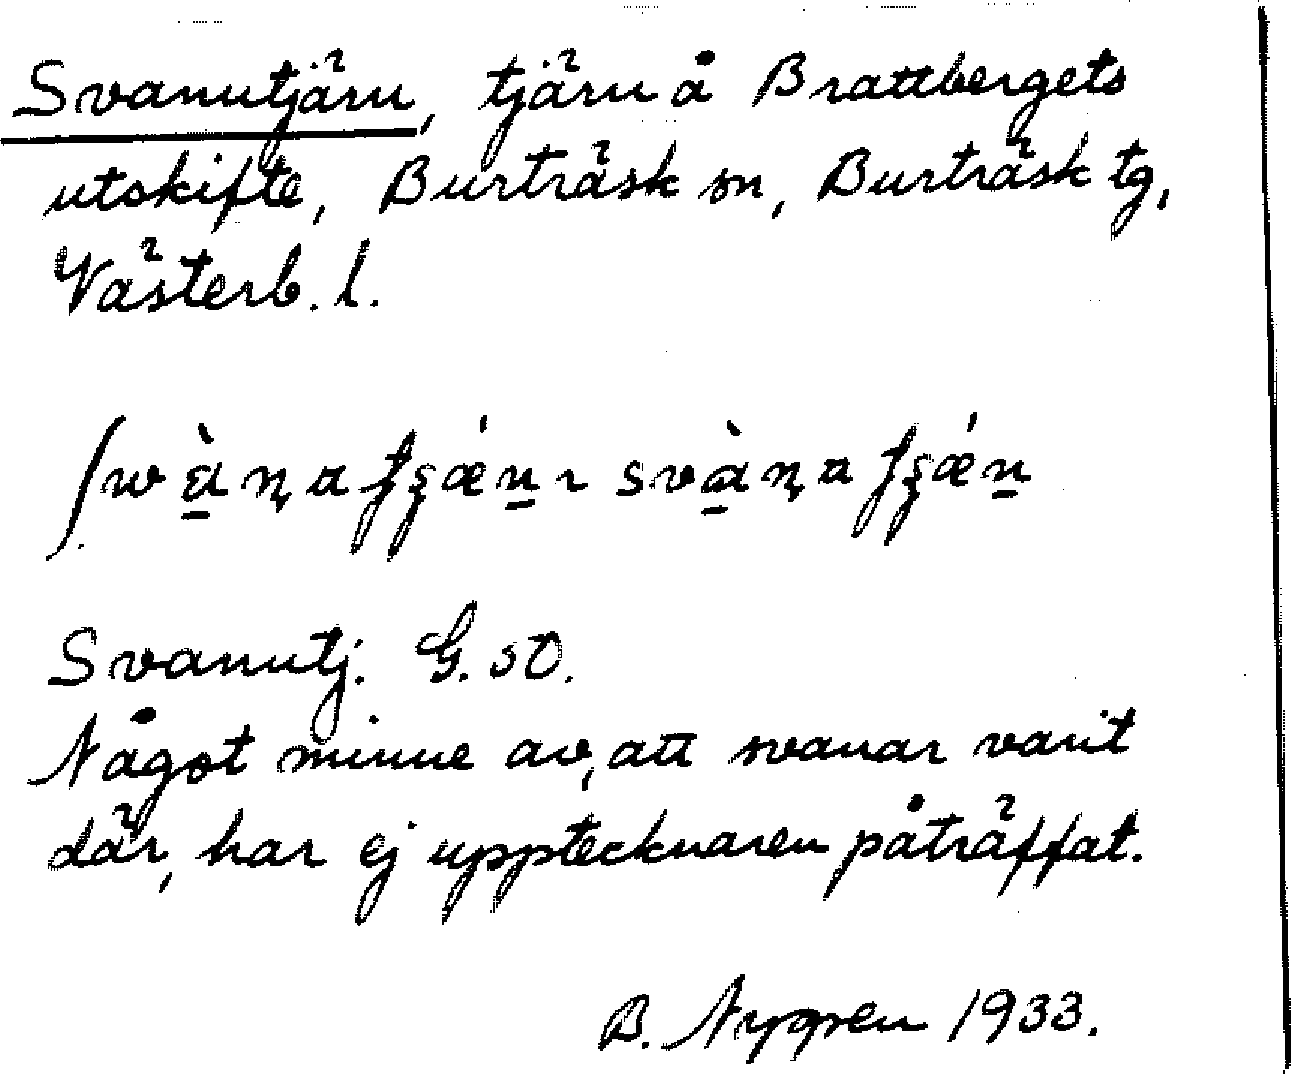 Svanutjärn, tjärn å Brattbergets
utskifte, Burträsk sn, Burträsk tg,
Västerb. l.
Svanutj. G. st O.
Något minne av, att svanar varit
där, har ej upptecknaren påträffat.
B. Nygren 1933.